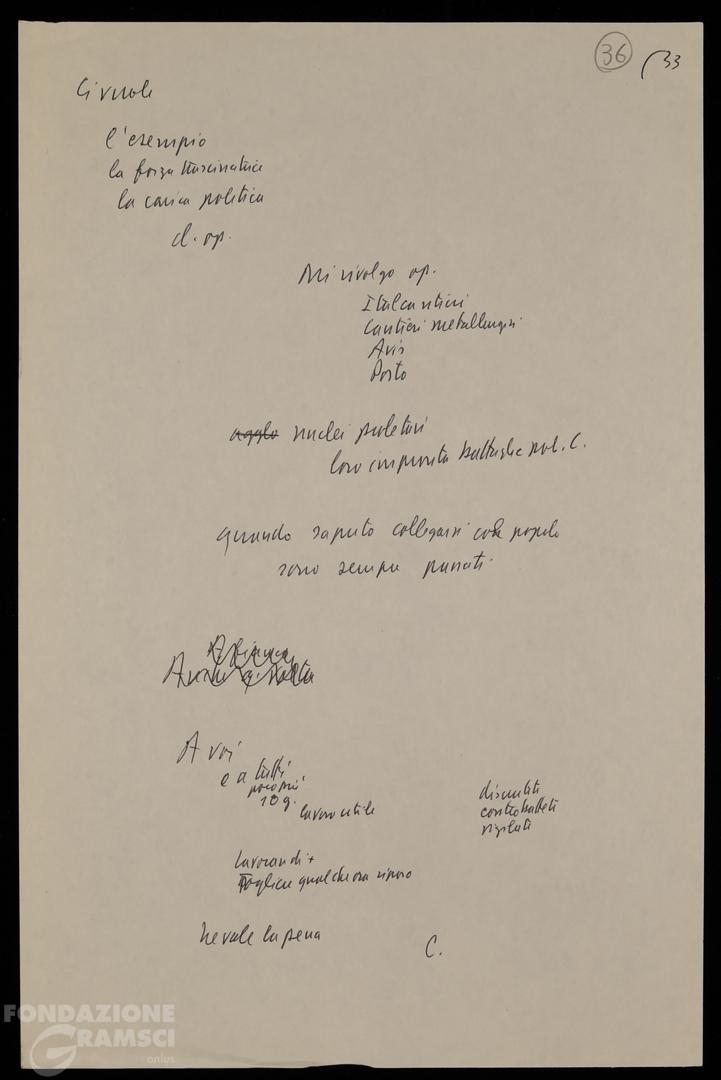 36 (33
Ci vuole
l'esempio
la forza trascinatrice
la carica politica
cl. op.
Mi rivolgo op.
Italcantieri
Cantieri metallurgici
Avis
Porto
agglo nuclei proletari
loro impronta battaglie pol. C.
quando saputo collegarsi col popolo
sono sempre
A voi
e a tutti
poco più
10 g.
lavoro utile
discutete
controbattete
vigilate
lavorando +
Togliere qualche ora riposo
Ne vale la pena
C.
FONDAZIONE
GRAMSCI
onlus